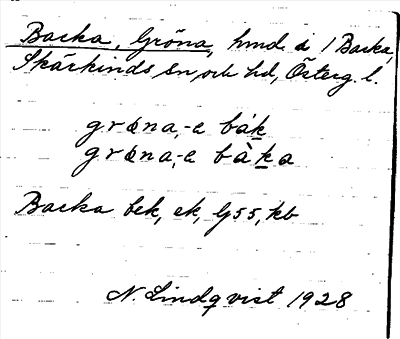 Backa, Gröna, hmd i 1 Backa,
Skärkinds sn, och hd, Österg. l.
grøna,-e bàk
grøna,-e bàka
Backa bek, ek, G55, kb
N. Lindqvist 1928